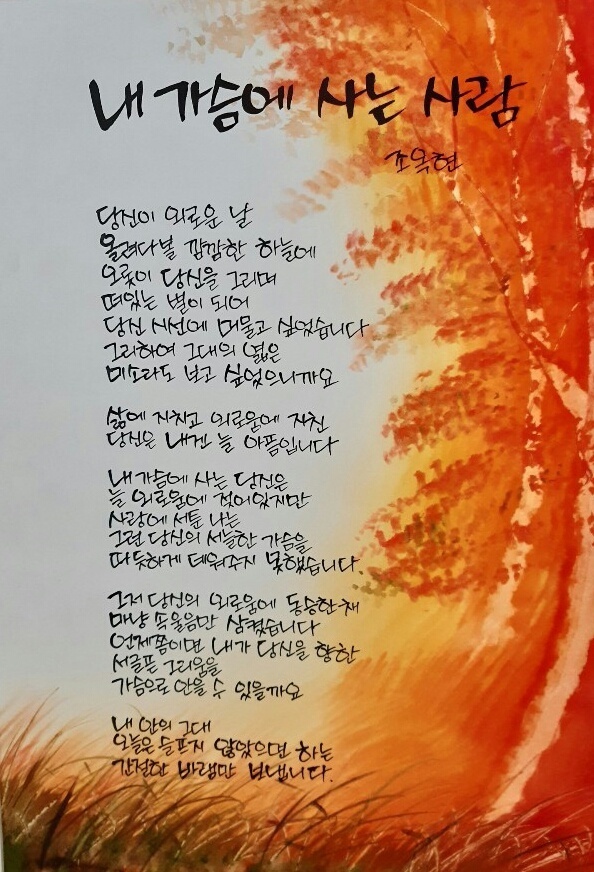 내 가슴에 사는 사람
조옥현
당신이 외로운 날
올려다볼 깜깜한 하늘에
오롯이 당신을 그리며
떠있는 별이 되어
당신 시선에 머물고 싶었습니다
그리하여 그대의 엷은
미소라도 보고 싶었으니까요
삶에 지치고 외로움에 지친
당신은 내겐 늘 아픔입니다
내 가슴에 사는 당신은
늘 외로움에 젖어있지만
사랑에 서툰 나는
그런 당신의 서늘한 가슴을
따뜻하게 데워주지 못했습니다.
그저 당신의 외로움에 동승한 채
마냥 속울음만 삼켰습니다
언제쯤이면 내가 당신을 향한
서글픈 그리움을
가슴으로 안을 수 있을까요
내 안의 그대
오늘은 슬프지 않았으면 하는
간절한 바램만 보냅니다.